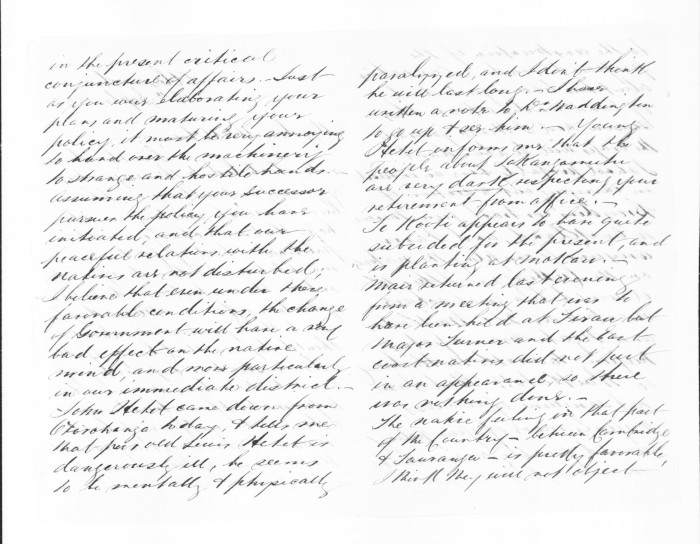 in the present critical
conjuncture of affairs. Just
as you were elaborating your
plans and maturing your
policy it must be very annoying
to hand over the machinery
to strange and hostile hands. -
assuming that your successor
pursues the policy you have
initiated, and that our
peaceful relations with the
natives are not disturbed;
I believe that even under these
favorable conditions, the change
of Government will have a very
bad effect on the native
mind, and more particularly
in our immediate district. -
John Hetet came down from
Otorohanga today, & tells me
that poor old Louis Hetet is
dangerously ill, he seems
to be mentally & physically
paralyzed, and I don't think
he will last long. - I have
written a note to Dr. Waddington
to go up & see him. - Young
Hetet informs me that the
people about Tokangamutu
are very dark respecting your
retirement from office. -
Te Kooti appears to have quite
subsided for the present, and
is planting at
Mair returned last evening
from a meeting that was to
have been held at Tirau but
Major Turner and the East
coast natives did not put
in an appearance, so there
was nothing done. -
The native feeling in that part
of the Country - between Cambridge
& Tauranga - is pretty favorable,
I think they will not object